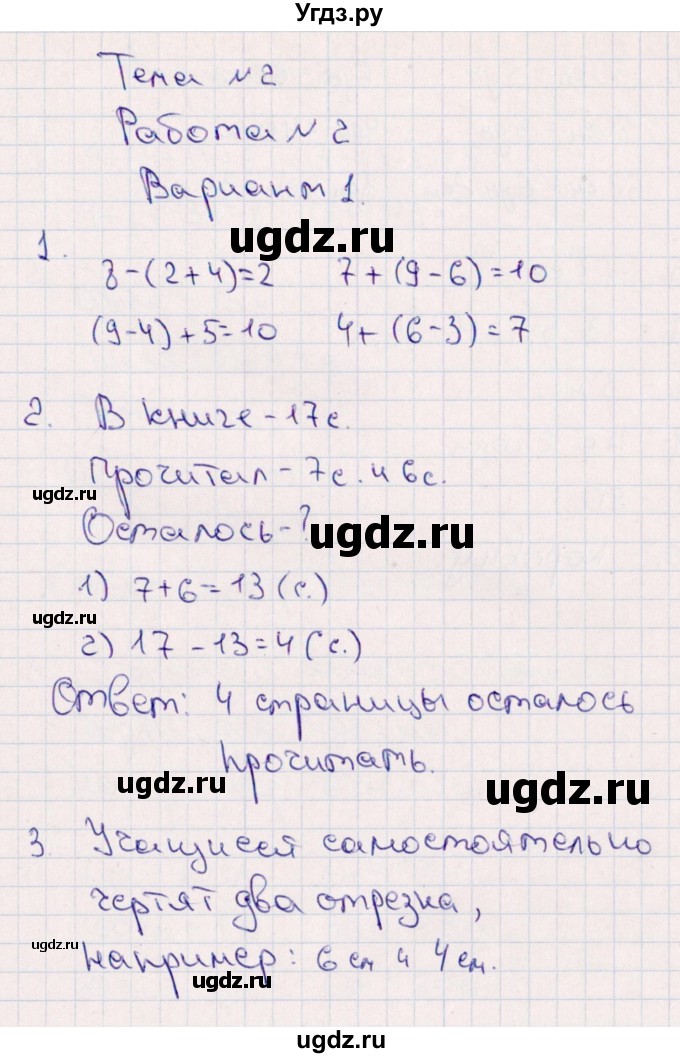 Угдз.ру
Тема №2
Работа №2
Вариант 1.
ugdz.ru
1.
8-(2+4)=2 7+(9-6)=10
(9-4)+5=10 4+(6-3)=7
2. В книге - 17 с.
Прочитал - 7 с. и 6 с.
ugdz.ru
Осталось - ?
ugdz.ru
1) 7+6=13 (с.)
ugdz.ru
2) 17-13=4 (с.)
Ответ: 4 страницы осталось
прочитать.
ugdz.ru
ugdz.ru
3. Учащиеся самостоятельно
чертят два отрезка,
ugdz.ru
например: 6 см и 4 см.
ugdz.ru
ugdz.ru